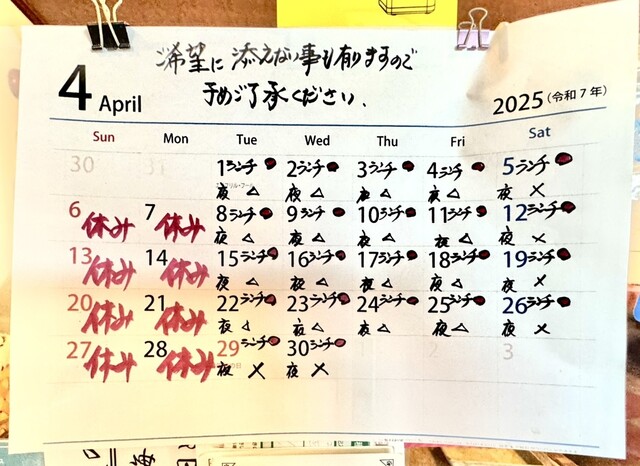 ご希望に添えない事も有りますので
予めご了承ください。
4 April
2025(令和7年)
Sun Mon Tue Wed Thu Fri Sat
30 31 1ランチ● 2ランチ● 3ランチ● 4ランチ● 5ランチ●
夜 △ 夜 △ 夜 △ 夜 △ 夜 ×
6休み 7休み 8ランチ● 9ランチ● 10ランチ● 11ランチ● 12ランチ●
夜 △ 夜 △ 夜 △ 夜 △ 夜 ×
13休み 14休み 15ランチ● 16ランチ● 17ランチ● 18ランチ● 19ランチ●
夜 △ 夜 △ 夜 △ 夜 △ 夜 ×
20休み 21休み 22ランチ● 23ランチ● 24ランチ● 25ランチ● 26ランチ●
夜 △ 夜 △ 夜 △ 夜 △ 夜 ×
27休み 28休み 29ランチ● 30ランチ● 2 3
夜 × 夜 ×